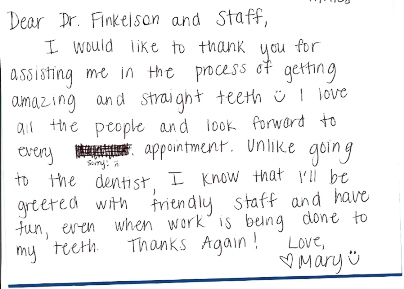 Dear Dr. Finkelson and Staff,
I would like to thank you for
assisting me in the process of getting
amazing and straight teeth ☺ I love
all the people and look forward to
every appointment. Unlike going
sorry! :)
to the dentist, I know that I'll be
greeted with friendly staff and have
fun, even when work is being done to
my teeth. Thanks Again! Love,
♡Mary☺